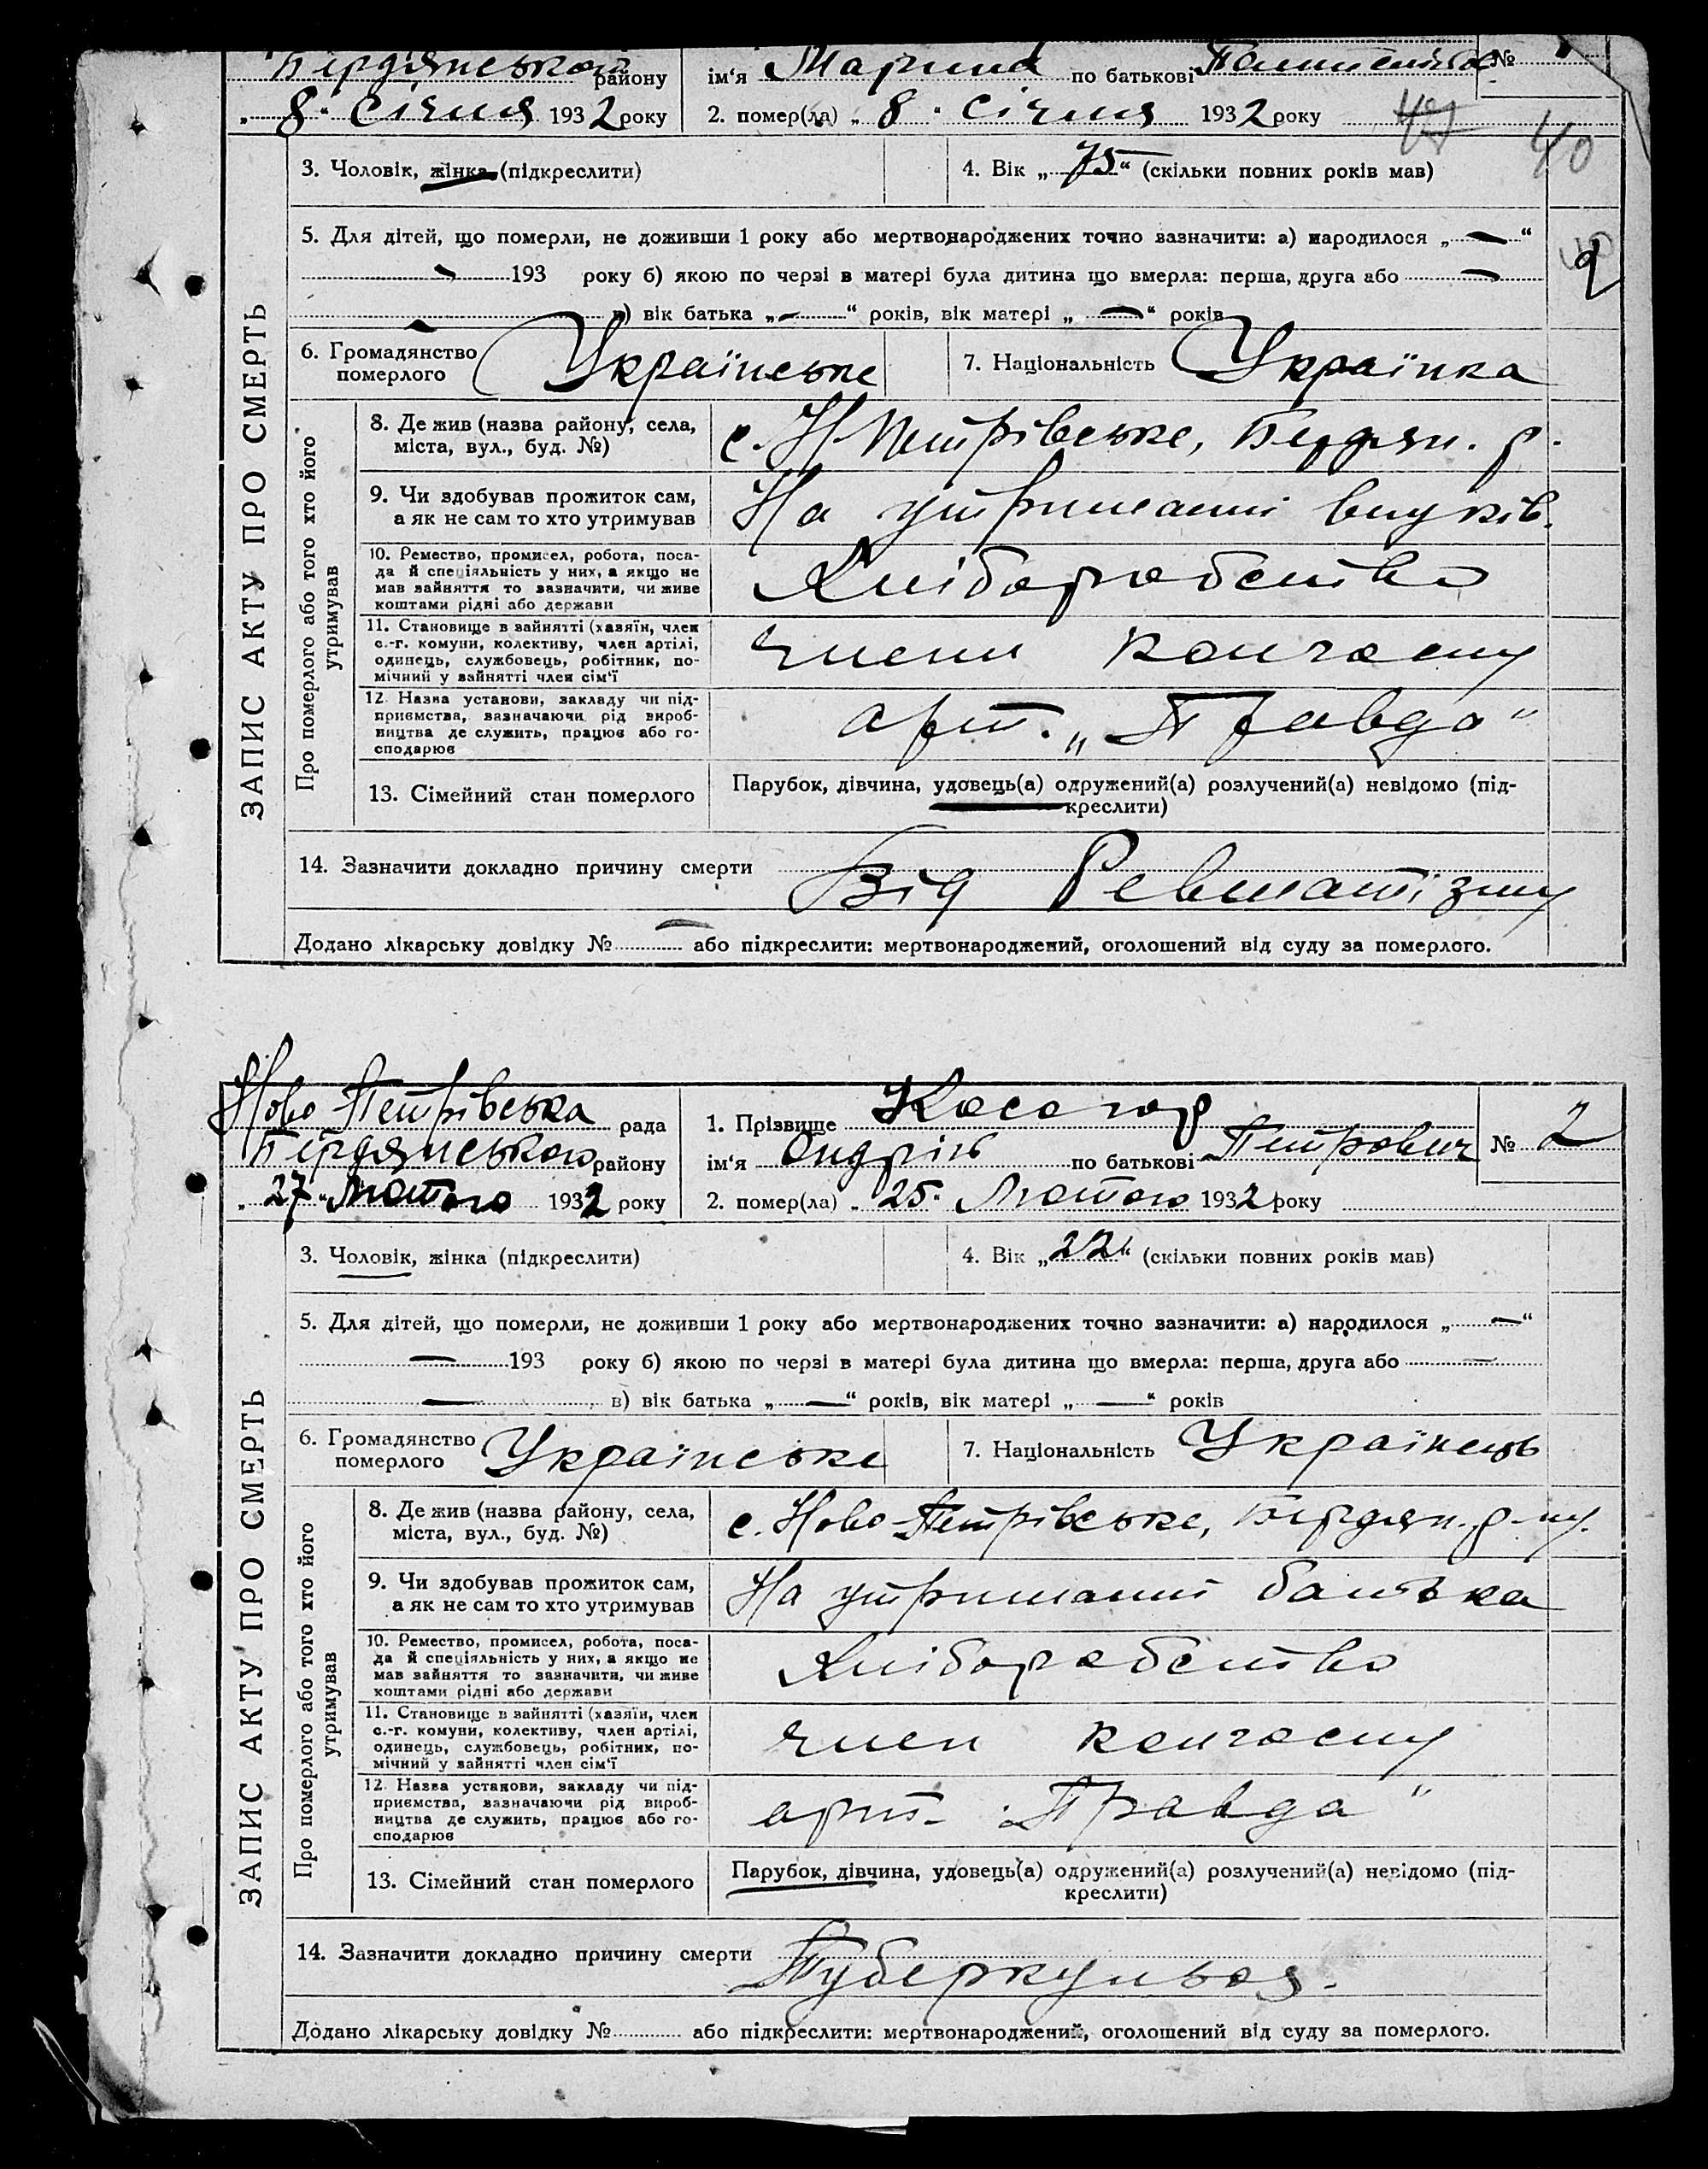 Бердянської району ім'я Марина по батькові №
„ 8 " Січня 1932 року 2. помер(ла) „ 8 " Січня 1932 року 47 40
3. Чоловік, жінка (підкреслити) 4. Вік „ 75 " (скільки повних років мав)
5. Для дітей, що померли, не доживши 1 року або мертвонароджених точно зазначити: а) народилося „ — "
— 193 року б) якою по черзі в матері була дитина що вмерла: перша, друга або —
— в) вік батька „ — " років, вік матері „ — " років
6. Громадянство померлого Українське 7. Національність Українка
ЗАПИС АКТУ ПРО СМЕРТЬ
Про померлого або того хто його утримував
8. Де жив (назва району, села,
міста, вул., буд. №)
с. Н-Петрівське, Бердян. р.
9. Чи здобував прожиток сам,
а як не сам то хто утримував
На утриманні внуків.
10. Ремество, промисел, робота, поса-
да й спеціяльність у них, а якщо не
мав зайняття то зазначити, чи живе
коштами рідні або держави
Хліборобство
11. Становище в зайнятті (хазяїн, член
с.-г. комуни, колективу, член артілі,
одинець, службовець, робітник, по-
мічний у зайнятті член сім'ї
член колгоспу
12. Назва установи, закладу чи під-
приємства, зазначаючи рід вироб-
ництва де служить, працює або го-
сподарює
арт. „Правда"
13. Сімейний стан померлого
Парубок, дівчина, удовець(а) одружений(а) розлучений(а) невідомо (під-
креслити)
14. Зазначити докладно причину смерти Від Ревматізму
Додано лікарську довідку № — або підкреслити: мертвонароджений, оголошений від суду за померлого.
Ново-Петрівська рада 1. Прізвище Косогор
Бердянського району ім'я Ондрій по батькові Петрович № 2
„ 27 " Лютого 1932 року 2. помер(ла) „ 25 " Лютого 1932 року
3. Чоловік, жінка (підкреслити) 4. Вік „ 22 " (скільки повних років мав)
5. Для дітей, що померли, не доживши 1 року або мертвонароджених точно зазначити: а) народилося „ — "
— 193 року б) якою по черзі в матері була дитина що вмерла: перша, друга або —
— в) вік батька „ — " років, вік матері „ — " років
6. Громадянство померлого Українське 7. Національність Українець
ЗАПИС АКТУ ПРО СМЕРТЬ
Про померлого або того хто його утримував
8. Де жив (назва району, села,
міста, вул., буд. №)
с. Ново-Петрівське, Бердян. р-ну.
9. Чи здобував прожиток сам,
а як не сам то хто утримував
На утриманні батька
10. Ремество, промисел, робота, поса-
да й спеціяльність у них, а якщо не
мав зайняття то зазначити, чи живе
коштами рідні або держави
Хліборобство
11. Становище в зайнятті (хазяїн, член
с.-г. комуни, колективу, член артілі,
одинець, службовець, робітник, по-
мічний у зайнятті член сім'ї
член колгоспу
12. Назва установи, закладу чи під-
приємства, зазначаючи рід вироб-
ництва де служить, працює або го-
сподарює
арт. „Правда"
13. Сімейний стан померлого
Парубок, дівчина, удовець(а) одружений(а) розлучений(а) невідомо (під-
креслити)
14. Зазначити докладно причину смерти Туберкульоз.
Додано лікарську довідку № або підкреслити: мертвонароджений, оголошений від суду за померлого.